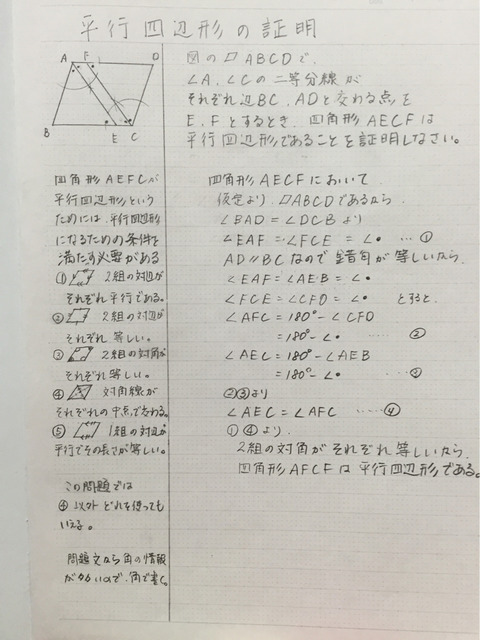 平行四辺形の証明
A F D
B E C
図の▱ABCDで、
∠A、∠Cの二等分線が
それぞれ辺BC、ADと交わる点を
E、Fとするとき、四角形AECFは
平行四辺形であることを証明しなさい。
四角形AEFCが
平行四辺形という
ためには、平行四辺形
になるための条件を
満たす必要がある
① 2組の対辺が
それぞれ平行である。
② 2組の対辺が
それぞれ等しい。
③ 2組の対角が
それぞれ等しい。
④ 対角線が
それぞれの中点で交わる。
⑤ 1組の対辺が
平行でその長さが等しい。
この問題では
④以外どれを使っても
いえる。
問題文なら角の情報
が多いので、角で書く。
四角形AECFにおいて
仮定より、▱ABCDであるなら
∠BAD=∠DCBより
∠EAF=∠FCE=∠• …①
AD//BCなので錯角が等しいなら
∠EAF=∠AEB=∠•
∠FCE=∠CFD=∠• とすると、
∠AFC=180°-∠CFD
=180°-∠• ……②
∠AEC=180°-∠AEB
=180°-∠• ……③
②③より
∠AEC=∠AFC ……④
①④より、
2組の対角がそれぞれ等しいなら
四角形AFCFは平行四辺形である。